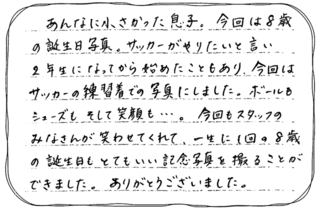 あんなに小さかった息子。今回は8歳
の誕生日写真。サッカーがやりたいと言い
2年生になってから始めたこともあり、今回は
サッカーの練習着での写真にしました。ボールも
シューズも、そして笑顔も…。今回もスタッフの
みなさんが笑わせてくれて、一生に1回の8歳
の誕生日もとてもいい記念写真を撮ることが
できました。ありがとうございました。